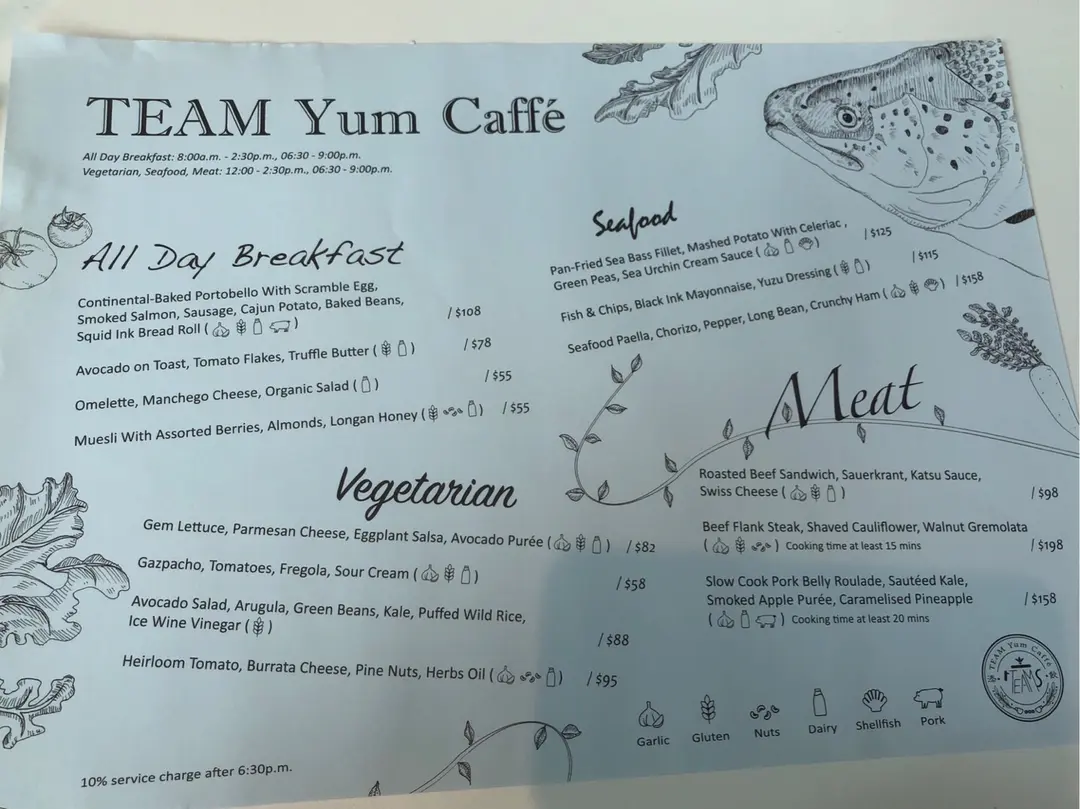 TEAM Yum Caffé
All Day Breakfast: 8:00a.m. - 2:30p.m., 06:30 - 9:00p.m.
Vegetarian, Seafood, Meat: 12:00 - 2:30p.m., 06:30 - 9:00p.m.
All Day Breakfast
Continental-Baked Portobello With Scramble Egg,
Smoked Salmon, Sausage, Cajun Potato, Baked Beans,
Squid Ink Bread Roll ( ) / $108
Avocado on Toast, Tomato Flakes, Truffle Butter ( ) / $78
Omelette, Manchego Cheese, Organic Salad ( ) / $55
Muesli With Assorted Berries, Almonds, Longan Honey ( ) / $55
Vegetarian
Gem Lettuce, Parmesan Cheese, Eggplant Salsa, Avocado Purée ( ) / $82
Gazpacho, Tomatoes, Fregola, Sour Cream ( ) / $58
Avocado Salad, Arugula, Green Beans, Kale, Puffed Wild Rice,
Ice Wine Vinegar ( ) / $88
Heirloom Tomato, Burrata Cheese, Pine Nuts, Herbs Oil ( ) / $95
10% service charge after 6:30p.m.
Seafood
Pan-Fried Sea Bass Fillet, Mashed Potato With Celeriac , / $125
Green Peas, Sea Urchin Cream Sauce ( )
Fish & Chips, Black Ink Mayonnaise, Yuzu Dressing ( ) / $115
Seafood Paella, Chorizo, Pepper, Long Bean, Crunchy Ham ( ) / $158
Meat
Roasted Beef Sandwich, Sauerkrant, Katsu Sauce,
Swiss Cheese ( ) / $98
Beef Flank Steak, Shaved Cauliflower, Walnut Gremolata
( ) Cooking time at least 15 mins / $198
Slow Cook Pork Belly Roulade, Sautéed Kale,
Smoked Apple Purée, Caramelised Pineapple / $158
( ) Cooking time at least 20 mins
Garlic Gluten Nuts Dairy Shellfish Pork
TEAM Yum Caffé
TEAMS